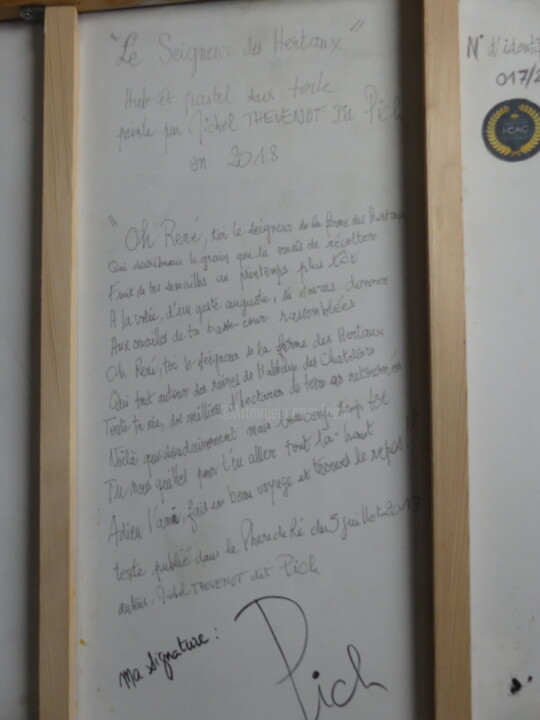 "Le Seigneur des Hertaux"
Huile et pastel sur toile
peinte par Michel THEVENOT dit Pich
en 2018
N° d'identif
017/2
I-CAC
"Oh René, toi le seigneur de la ferme des Hertaux
Qui distribuais le grain que tu venais de récolter
Fruit de tes semailles au printemps plus tôt
A la volée, d'un geste auguste, tu savais donner
Aux ouailles de ta basse-cour rassemblées
Oh René, toi le seigneur de la ferme des Hertaux
Qui tout autour des ruines de l'abbaye des Chateliers
Toute ta vie, des milliers d'hectares de terre as retourné
Voilà que soudainement mais beaucoup trop tôt
Tu nous quittes pour t'en aller tout là-haut
Adieu l'ami, fais un beau voyage et trouve le repos
texte publié dans le Phare de Ré du 5 juillet 2017
auteur. Michel THEVENOT dit Pich
ma signature :
Pich